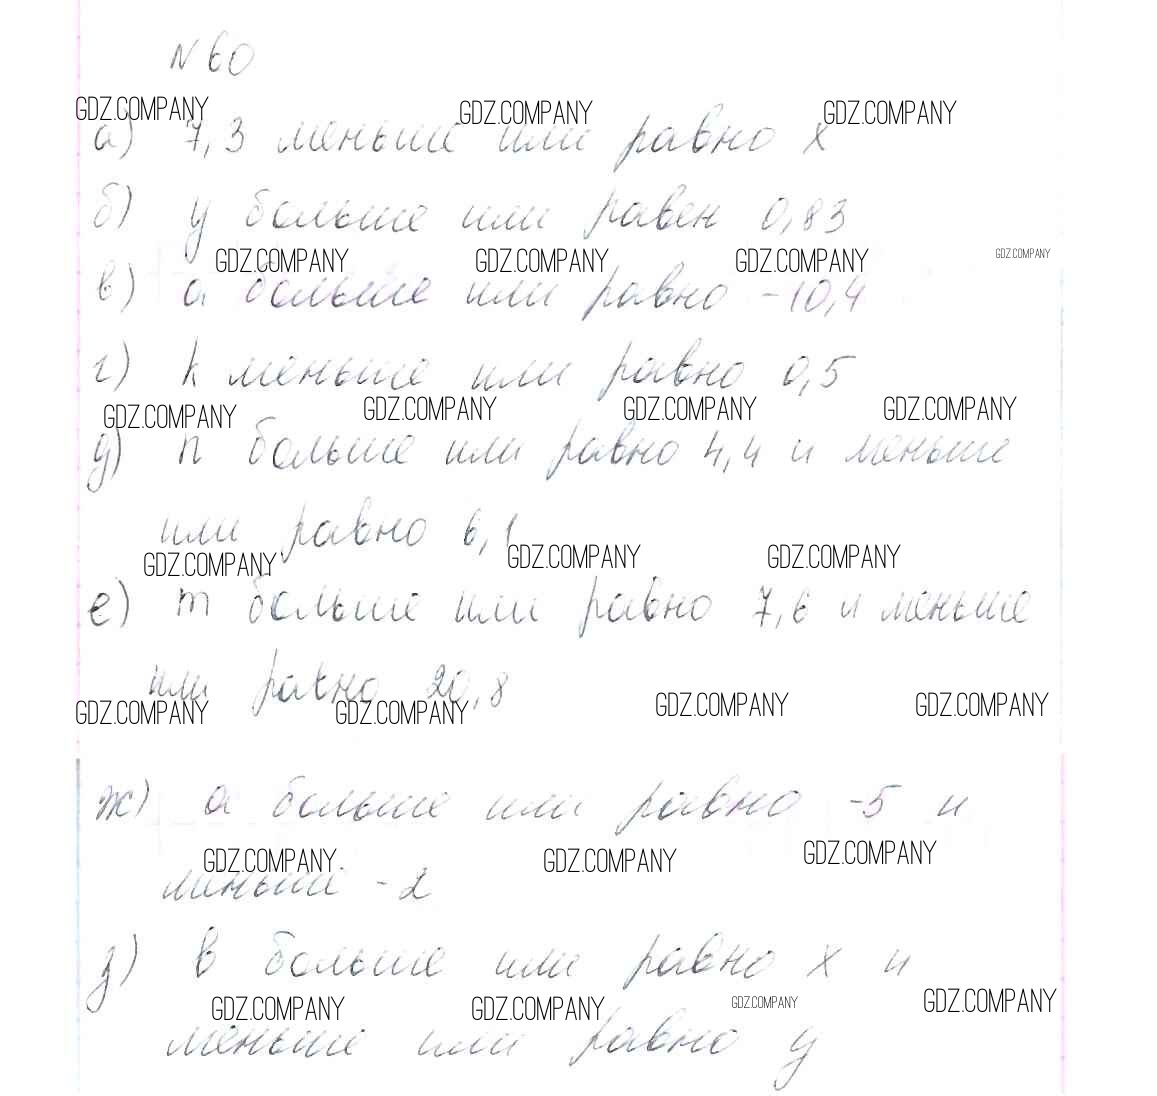 N 60
GDZ.COMPANY GDZ.COMPANY GDZ.COMPANY
а) 7,3 меньше или равно x
б) y больше или равен 0,83
GDZ.COMPANY GDZ.COMPANY GDZ.COMPANY GDZ.COMPANY
в) a больше или равно -10,4
г) k меньше или равно 0,5
GDZ.COMPANY GDZ.COMPANY GDZ.COMPANY GDZ.COMPANY
д) n больше или равно 4,4 и меньше
или равно 6,1
GDZ.COMPANY GDZ.COMPANY GDZ.COMPANY
е) m больше или равно 7,6 и меньше
или равно 20,8
GDZ.COMPANY GDZ.COMPANY GDZ.COMPANY GDZ.COMPANY
ж) a больше или равно -5 и
GDZ.COMPANY GDZ.COMPANY GDZ.COMPANY
меньше -2
з) в больше или равно x и
GDZ.COMPANY GDZ.COMPANY GDZ.COMPANY GDZ.COMPANY
меньше или равно y